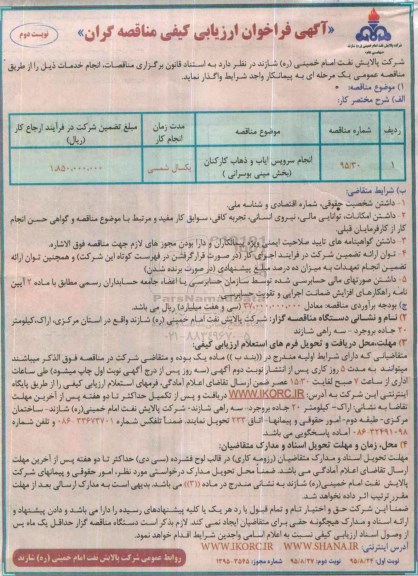 «آگهی فراخوان ارزیابی کیفی مناقصه گران»
نوبت دوم
شرکت پالایش نفت امام خمینی (ره) شازند در نظر دارد به استناد قانون برگزاری مناقصات، انجام خدمات ذیل را از طریق
مناقصه عمومی یک مرحله ای به پیمانکار واجد شرایط واگذار نماید.
۱) موضوع مناقصه:
الف) شرح مختصر کار:
ردیف
شماره مناقصه
موضوع مناقصه
مدت زمان انجام کار
مبلغ تضمین شرکت در فرآیند ارجاع کار (ریال)
۱
۹۵/۳۰
انجام سرویس ایاب و ذهاب کارکنان (بخش مینی بوسرانی)
یکسال شمسی
۱،۸۵۰،۰۰۰،۰۰۰
ب) شرایط متقاضی:
۱ - داشتن شخصیت حقوقی، شماره اقتصادی و شناسه ملی.
۲ - داشتن امکانات، توانایی مالی، نیروی انسانی، تجربه کافی، سوابق کار مفید و مرتبط با موضوع مناقصه و گواهی حسن انجام
کار از کارفرمایان قبلی.
۳ - داشتن گواهینامه های تایید صلاحیت ایمنی ویژه پیمانکاران و دارا بودن مجوز های لازم جهت مناقصه فوق الاشاره.
۴ - توان ارائه تضمین شرکت در فرایند ارجاع کار (در صورت قرارگرفتن در فهرست کوتاه این شرکت) و همچنین توان ارائه
تضمین انجام تعهدات به میزان ده درصد مبلغ پیشنهادی (در صورت برنده شدن)
۵ - داشتن صورتهای مالی حسابرسی شده توسط سازمان حسابرسی یا اعضاء جامعه حسابداران رسمی مطابق با ماده ۲ آیین
نامه راهکارهای افزایش ضمانت اجرایی و تقویت حسابرسی
ج) بودجه برآوردی مناقصه: معادل ۳۷،۰۰۰،۰۰۰،۰۰۰ (سی و هفت میلیارد) ریال می باشد.
۲) نام و نشانی دستگاه مناقصه گزار: شرکت پالایش نفت امام خمینی (ره) شازند واقع در استان مرکزی، اراک، کیلومتر
۲۰ جاده بروجرد - سه راهی شازند
۳) مهلت، محل دریافت و تحویل فرم های استعلام ارزیابی کیفی:
متقاضیانی که دارای شرایط اولیه مندرج در ((بند ب)) ماده یک بوده و متقاضی شرکت در مناقصه فوق الذکر میباشند
میتوانند به مدت ۵ روز کاری پس از انتشار نوبت دوم آگهی (سه روز پس از درج آگهی نوبت اول چاپ میشود) طی ساعات
اداری از ساعت ۷ صبح لغایت ۱۵:۳۰ عصر ضمن ارسال تقاضای اعلام آمادگی، فرمهای استعلام ارزیابی کیفی را از طریق پایگاه
اینترنتی این شرکت به آدرس: WWW.IKORC.IR دریافت و پس از تکمیل حداکثر تا دو هفته پس از آخرین مهلت
تقاضا به نشانی: اراک - کیلومتر ۲۰ جاده بروجرد - سه راهی شازند - شرکت پالایش نفت امام خمینی (ره) شازند - ساختمان
مرکزی - طبقه دوم - امور حقوقی و پیمانها - اتاق ۲۲۳ تحویل نمایند. ضمنا شماره نمابر ۳۳۶۷۳۷۰۱-۰۸۶ و تلفن شماره
۳۳۴۹۱۰۹۸-۰۸۶ آماده پاسخگویی می باشد.
۴) محل، زمان و مهلت تحویل اسناد و مدارک متقاضیان:
مهلت تحویل اسناد و مدارک متقاضیان (رزومه کاری) در قالب لوح فشرده (سی دی) حداکثر تا دو هفته پس از آخرین مهلت
ارسال تقاضای اعلام آمادگی می باشد. ضمنا محل تحویل مدارک درخواستی مورد نظر، امور حقوقی و پیمانهای شرکت
پالایش نفت امام خمینی (ره) شازند به نشانی مندرج در ماده ((۳)) می باشد، بدیهی است به مدارک ارسالی بعد از مهلت
مقرر ترتیب اثر داده نخواهد شد.
ضمنا این شرکت حق و اختیار تام و تمام قبول یا رد هر یک یا کلیه پیشنهادهای رسیده را دارا می باشد و دادن پیشنهاد و
ارائه اسناد و مدارک هیچگونه حقی برای متقاضیان ایجاد نمی کند. لازم بذکر است دستگاه مناقصه گزار حداقل یک ماه پس
از وصول اسناد ارزیابی کیفی نسبت به اعلام اسامی واجدین شرایط اقدام خواهد نمود.
آدرس اینترنتی: WWW.IKORC.IR WWW.SHANA.IR
نوبت اول: ۹۵/۸/۲۴ نوبت دوم: ۹۵/۸/۲۷ شماره مجوز: ۱۳۹۵.۳۵۶۵
روابط عمومی شرکت پالایش نفت امام خمینی (ره) شازند